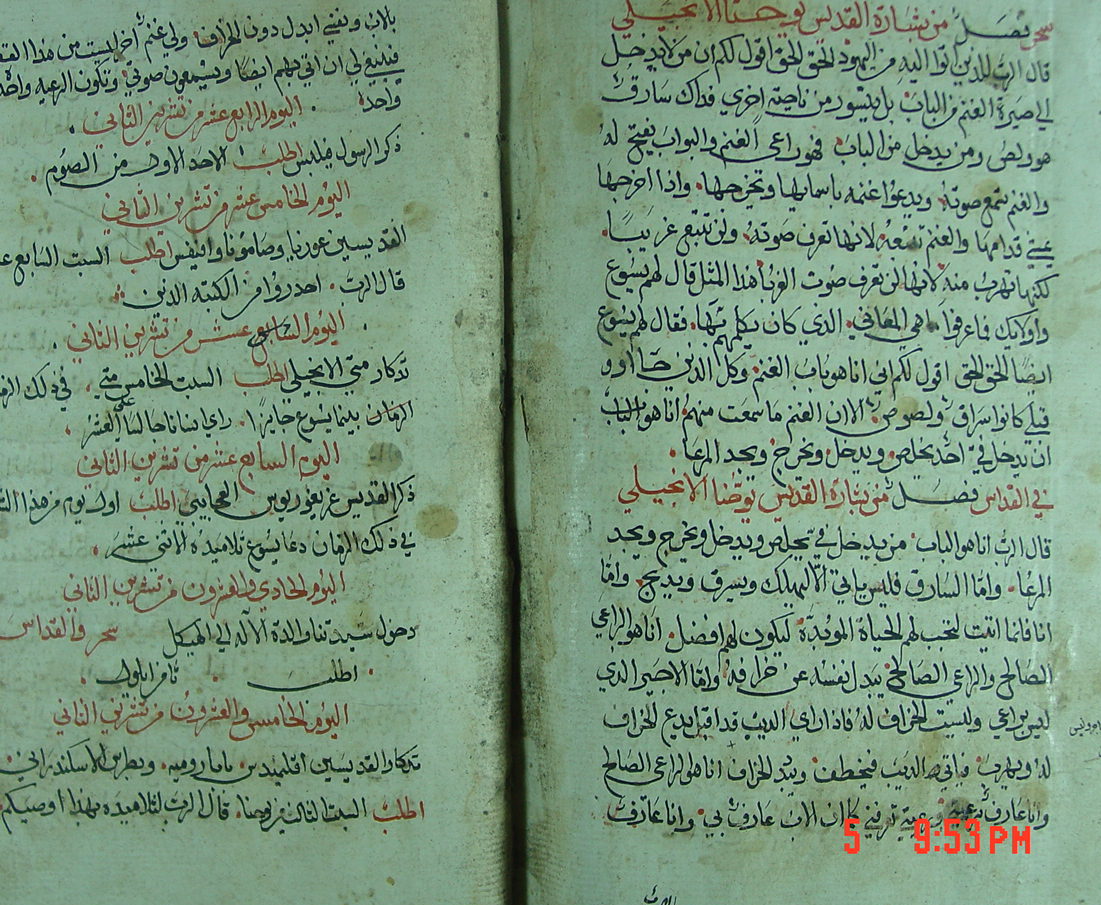 سحر فصل من بشارة القديس يوحنا الانجيلي
قال الرب للذين اتوا اليه من اليهود الحق الحق اقول لكم ان من لا يدخل
الي صيرة الغنم من الباب بل يتسور من ناحية اخري فداك سارق
هو ولص ومن يدخل من الباب فهو راعي الغنم والبواب يفتح له
والغنم تسمع صوته ويدعوا غنمه باسمايها وتخرجها واذا اخرجها
يمشي قدامها والغنم تتبعه لانها تعرف صوته ولن تتبع غريبًا
لكنها تهرب منه لانها لن تعرف صوت الغربا هذا المثل قال لهم يسوع
واولايك فما عرفوا ما هي المعاني الذي كان يكلمهم بها فقال لهم يسوع
ايضًا الحق الحق اقول لكم اني انا هو باب الغنم وكل الذين جااوو
قبلي كانوا سراق ولصوص الا ان الغنم ما سمعت منهم انا هو الباب
ان يدخل في احد يخلص ويدخل ويخرج ويجد المرعا
في القداس فصل من بشارة القديس يوحنا الانجيلي
قال الرب انا هو الباب من يدخل في يخلص ويدخل ويخرج ويجد
المرعا واما السارق فليس ياتي الا ليهلك ويسرق ويدبح واما
انا فانما اتيت لتجب لهم الحياة الموبدة ليكون لهم افضل انا هو الراعي
الصالح والراعي الصالح يبدل نفسه عن خرافه واما الاجير الدي
ليس براعي وليست الخراف له فاذا راي الديب قد اقبل يدع الخراف
له ويهرب فياتي الديب فيخطف ويبدد الخراف انا هو الراعي الصالح
وانا عارف برعيتي ورعيتي تعرفني كما ان الاب عارف بي وانا عارف
بالاب ونفسي ابدل دون الخراف ولي غنم أخر ليست من هذا القط
فينبغي لي ان اتي بهم ايضًا ويسمعون صوتي وتكون الرعيه واحد
واحدة
اليوم الرابع عشر من تشرين الثاني
ذكر الرسول فيلبس اطلب الاحد الاول من الصوم
اليوم الخامس عشر من تشرين الثاني
القديسين غوريا وصامونا وافيفس اطلب السبت السابع عش
قال الرب احدروا من الكتبه الدين
اليوم السابع عشر من تشرين الثاني
تدكار متي الانجيلي اطلب السبت الخامس متي في ذلك الزما
الزمان بينما يسوع جايزًا راي انسانا جالسًا علي العشر
اليوم السابع عشر من تشرين الثاني
ذكر القديس غريغوريوس العجايبي اطلب اول يوم من هذا الش
في ذلك الزمان دعا يسوع تلاميذه الاثني عشر
اليوم الحادي والعشرون من تشرين الثاني
دخول سيدتنا والدة الاله الي الهيكل سحر والقداس
اطلب ثامن ايلول
اليوم الخامس والعشرون من تشرين الثاني
تدكار القديسين اقليمدس بابا روميه وبطرس الاسكندراني
اطلب السبت الثالث قال الرب لتلاميده بهذا اوصيكم
5 9:53 PM